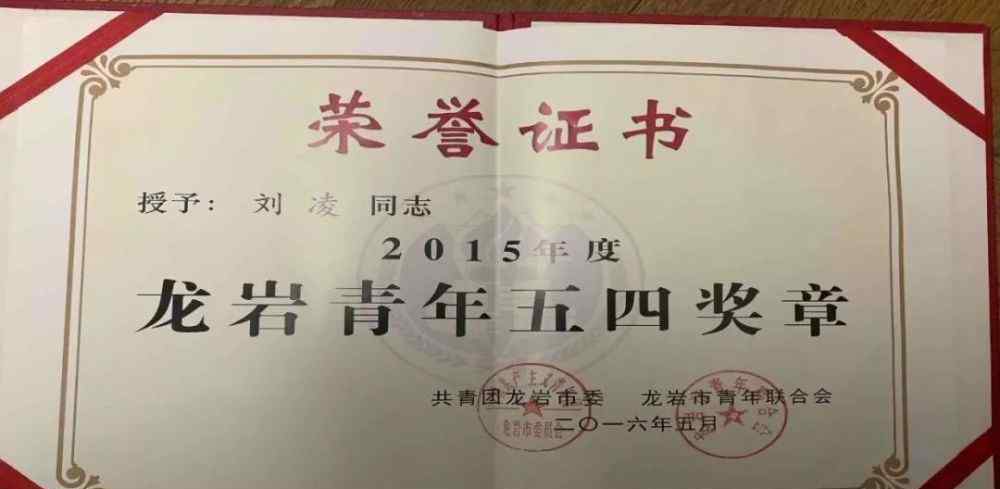 荣誉证书
授予：刘凌同志
2015年度
龙岩青年五四奖章
共青团龙岩市委 龙岩市青年联合会
二〇一六年五月
龙岩市委员会